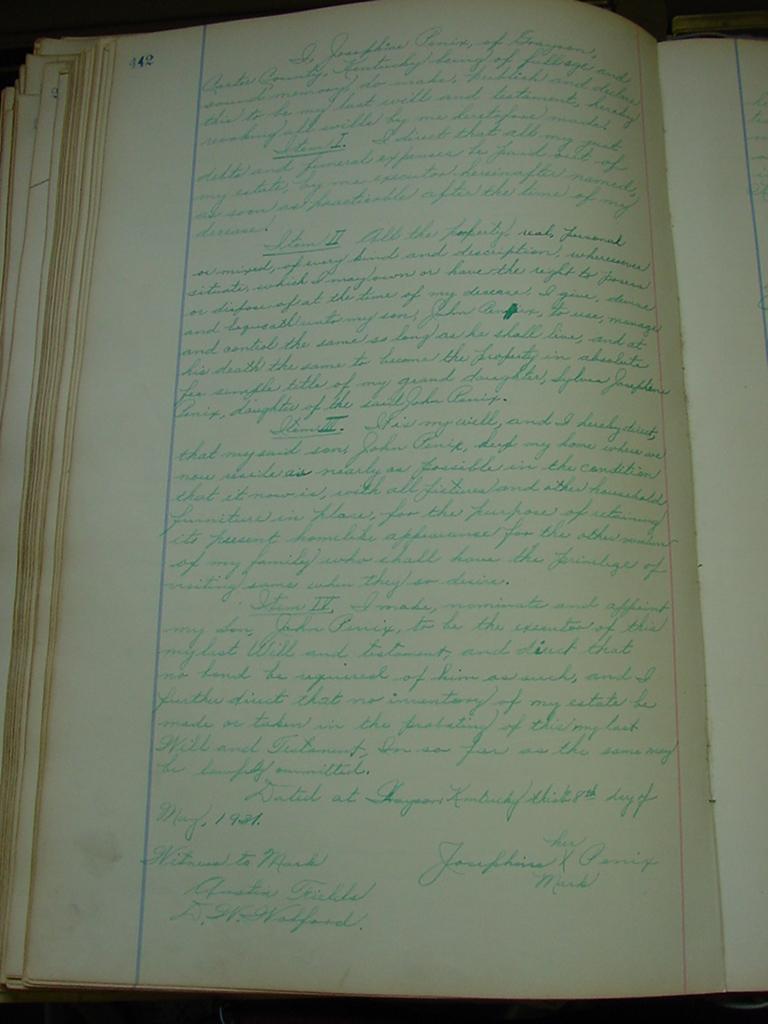 442
I, Josephine Penix, of Grayson,
Carter County, Kentucky, being of full age and
sound memory, do make, publish and declare
this to be my last will and testament, hereby
revoking all wills by me heretofore made.
Item I. I direct that all my just
debts and funeral expenses be paid out of
my estate, by my executor hereinafter named,
as soon as practicable after the time of my
decease.
Item II All the property, real, personal
or mixed, of every kind and description, wheresoever
situate, which I may own or have the right to
or dispose of at the time of my decease, I give, devise
and bequeath unto my son, John Penix, to use, manage
and control the same so long as he shall live, and at
his death the same to become the property in absolute
fee simple title of my grand daughter, Sylvea Josephine
Penix, daughter of the said John Penix.
Item III. It is my will, and I hereby direct,
that my said son, John Penix, keep my home where we
now reside as nearly as possible in the condition
that it now is, with all fixtures and other household
furniture in place, for the purpose of retaining
its present homelike appearance for the other members
of my family who shall have the privilege of
visiting same when they so desire.
Item IV. I make, nominate and appoint
my son, John Penix, to be the executor of this
my last Will and testament, and direct that
no bond be required of him as such, and I
further direct that no inventory of my estate be
made or taken in the probating of this my last
Will and Testament, In so far as the same may
be omitted.
Dated at Grayson, Kentucky this 8th day of
May, 1921.
Witness to Mark
Josephine her X Mark Penix
Austin Fields
D. W. Wolford.